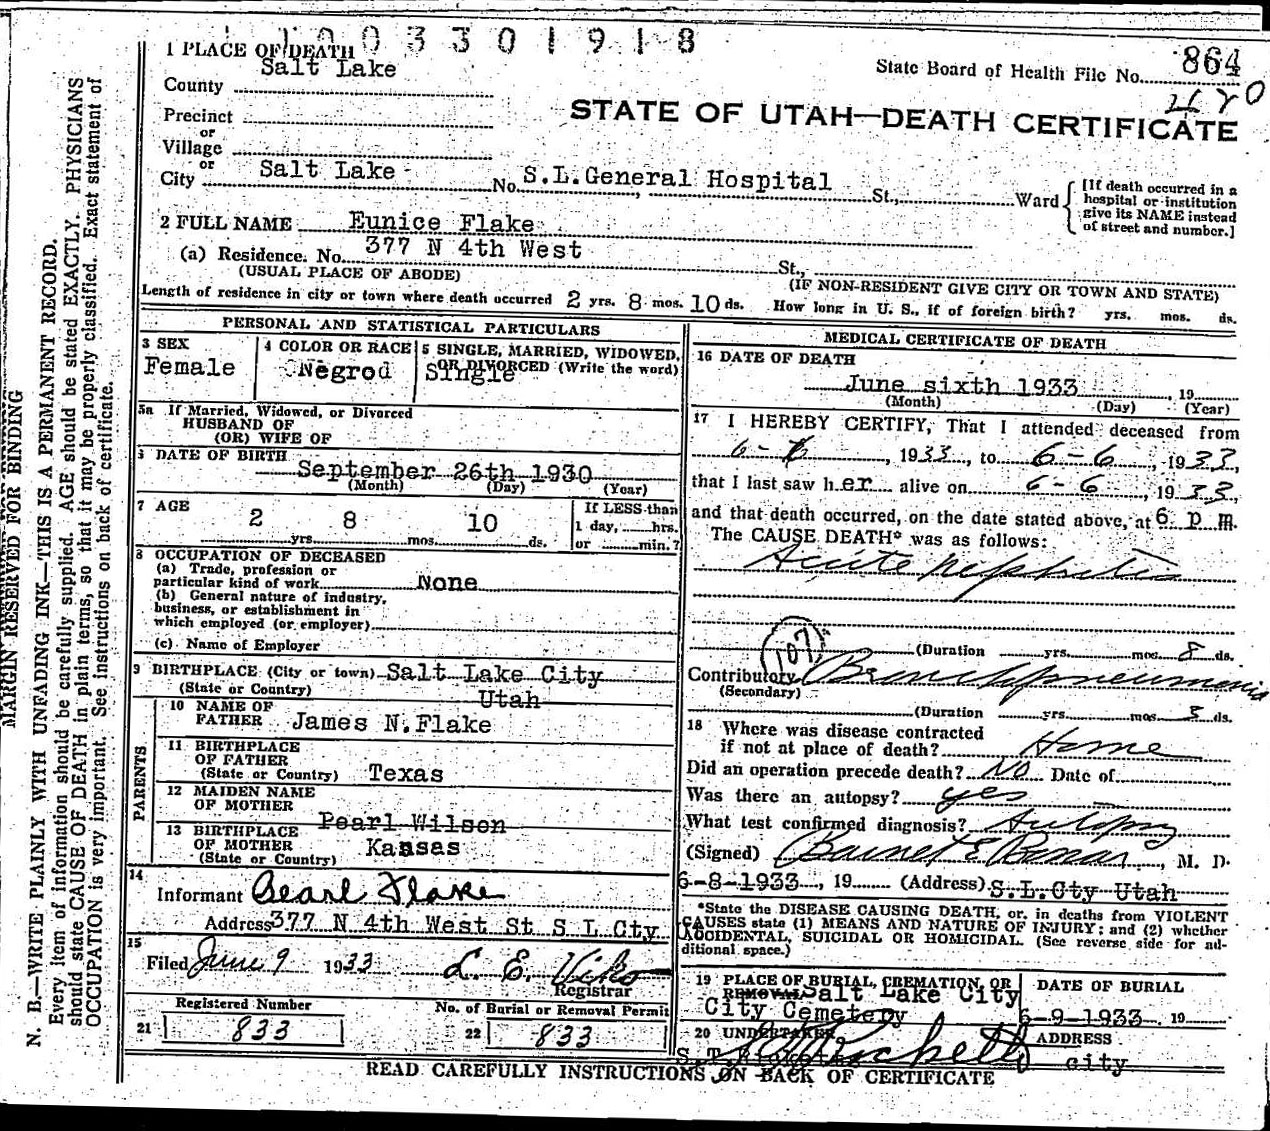 1003301918
1 PLACE OF DEATH
State Board of Health File No. 864
County Salt Lake
STATE OF UTAH—DEATH CERTIFICATE
Precinct
or
Village
or
City Salt Lake No. S.L.General Hospital St., Ward
[If death occurred in a hospital or institution give its NAME instead of street and number.]
2 FULL NAME Eunice Flake
(a) Residence. No. 377 N 4th West St.,
(USUAL PLACE OF ABODE) (IF NON-RESIDENT GIVE CITY OR TOWN AND STATE)
Length of residence in city or town where death occurred 2 yrs. 8 mos. 10 ds. How long in U. S., if of foreign birth? yrs. mos. ds.
PERSONAL AND STATISTICAL PARTICULARS
3 SEX
Female
4 COLOR OR RACE
Negrod
5 SINGLE, MARRIED, WIDOWED,
OR DIVORCED (Write the word)
Single
5a If Married, Widowed, or Divorced
HUSBAND OF
(OR) WIFE OF
6 DATE OF BIRTH
September 26th 1930
(Month) (Day) (Year)
7 AGE
2 yrs. 8 mos. 10 ds.
If LESS than
1 day, hrs.
or min.?
8 OCCUPATION OF DECEASED
(a) Trade, profession or
particular kind of work None
(b) General nature of industry,
business, or establishment in
which employed (or employer)
(c) Name of Employer
9 BIRTHPLACE (City or town) Salt Lake City
(State or Country) Utah
PARENTS
10 NAME OF
FATHER James N.Flake
11 BIRTHPLACE
OF FATHER
(State or Country) Texas
12 MAIDEN NAME
OF MOTHER Pearl Wilson
13 BIRTHPLACE
OF MOTHER
(State or Country) Kansas
14
Informant Pearl Flake
Address 377 N 4th West St S L Cty
15
Filed June 9 1933 L. E. Viko
Registrar
Registered Number
21 833
No. of Burial or Removal Permit
22 833
MEDICAL CERTIFICATE OF DEATH
16 DATE OF DEATH
June sixth 1933, 19
(Month) (Day) (Year)
17 I HEREBY CERTIFY, That I attended deceased from
, 1933, to 6-6, 1933,
that I last saw her alive on 6-6, 1933,
and that death occurred, on the date stated above, at 6 p m.
The CAUSE DEATH* was as follows:
Acute nephritis
(Duration yrs. mos. 8 ds.
107
Contributory Bronchopneumonia
(Secondary)
(Duration yrs. mos. 3 ds.
18 Where was disease contracted
if not at place of death? Home
Did an operation precede death? No Date of
Was there an autopsy? yes
What test confirmed diagnosis? Autopsy
(Signed) Barnet E Bonar, M. D.
6-8-1933, 19 (Address) S.L.Cty Utah
*State the DISEASE CAUSING DEATH, or, in deaths from VIOLENT
CAUSES state (1) MEANS AND NATURE OF INJURY; and (2) whether
ACCIDENTAL, SUICIDAL OR HOMICIDAL. (See reverse side for ad-
ditional space.)
19 PLACE OF BURIAL, CREMATION, OR
REMOVAL Salt Lake City
City Cemetery
DATE OF BURIAL
6-9-1933, 19
20 UNDERTAKER
ADDRESS
city
READ CAREFULLY INSTRUCTIONS ON BACK OF CERTIFICATE
MARGIN RESERVED FOR BINDING
N. B.—WRITE PLAINLY WITH UNFADING INK—THIS IS A PERMANENT RECORD.
Every item of information should be carefully supplied. AGE should be stated EXACTLY. PHYSICIANS
should state CAUSE OF DEATH in plain terms, so that it may be properly classified. Exact statement of
OCCUPATION is very important. See instructions on back of certificate.